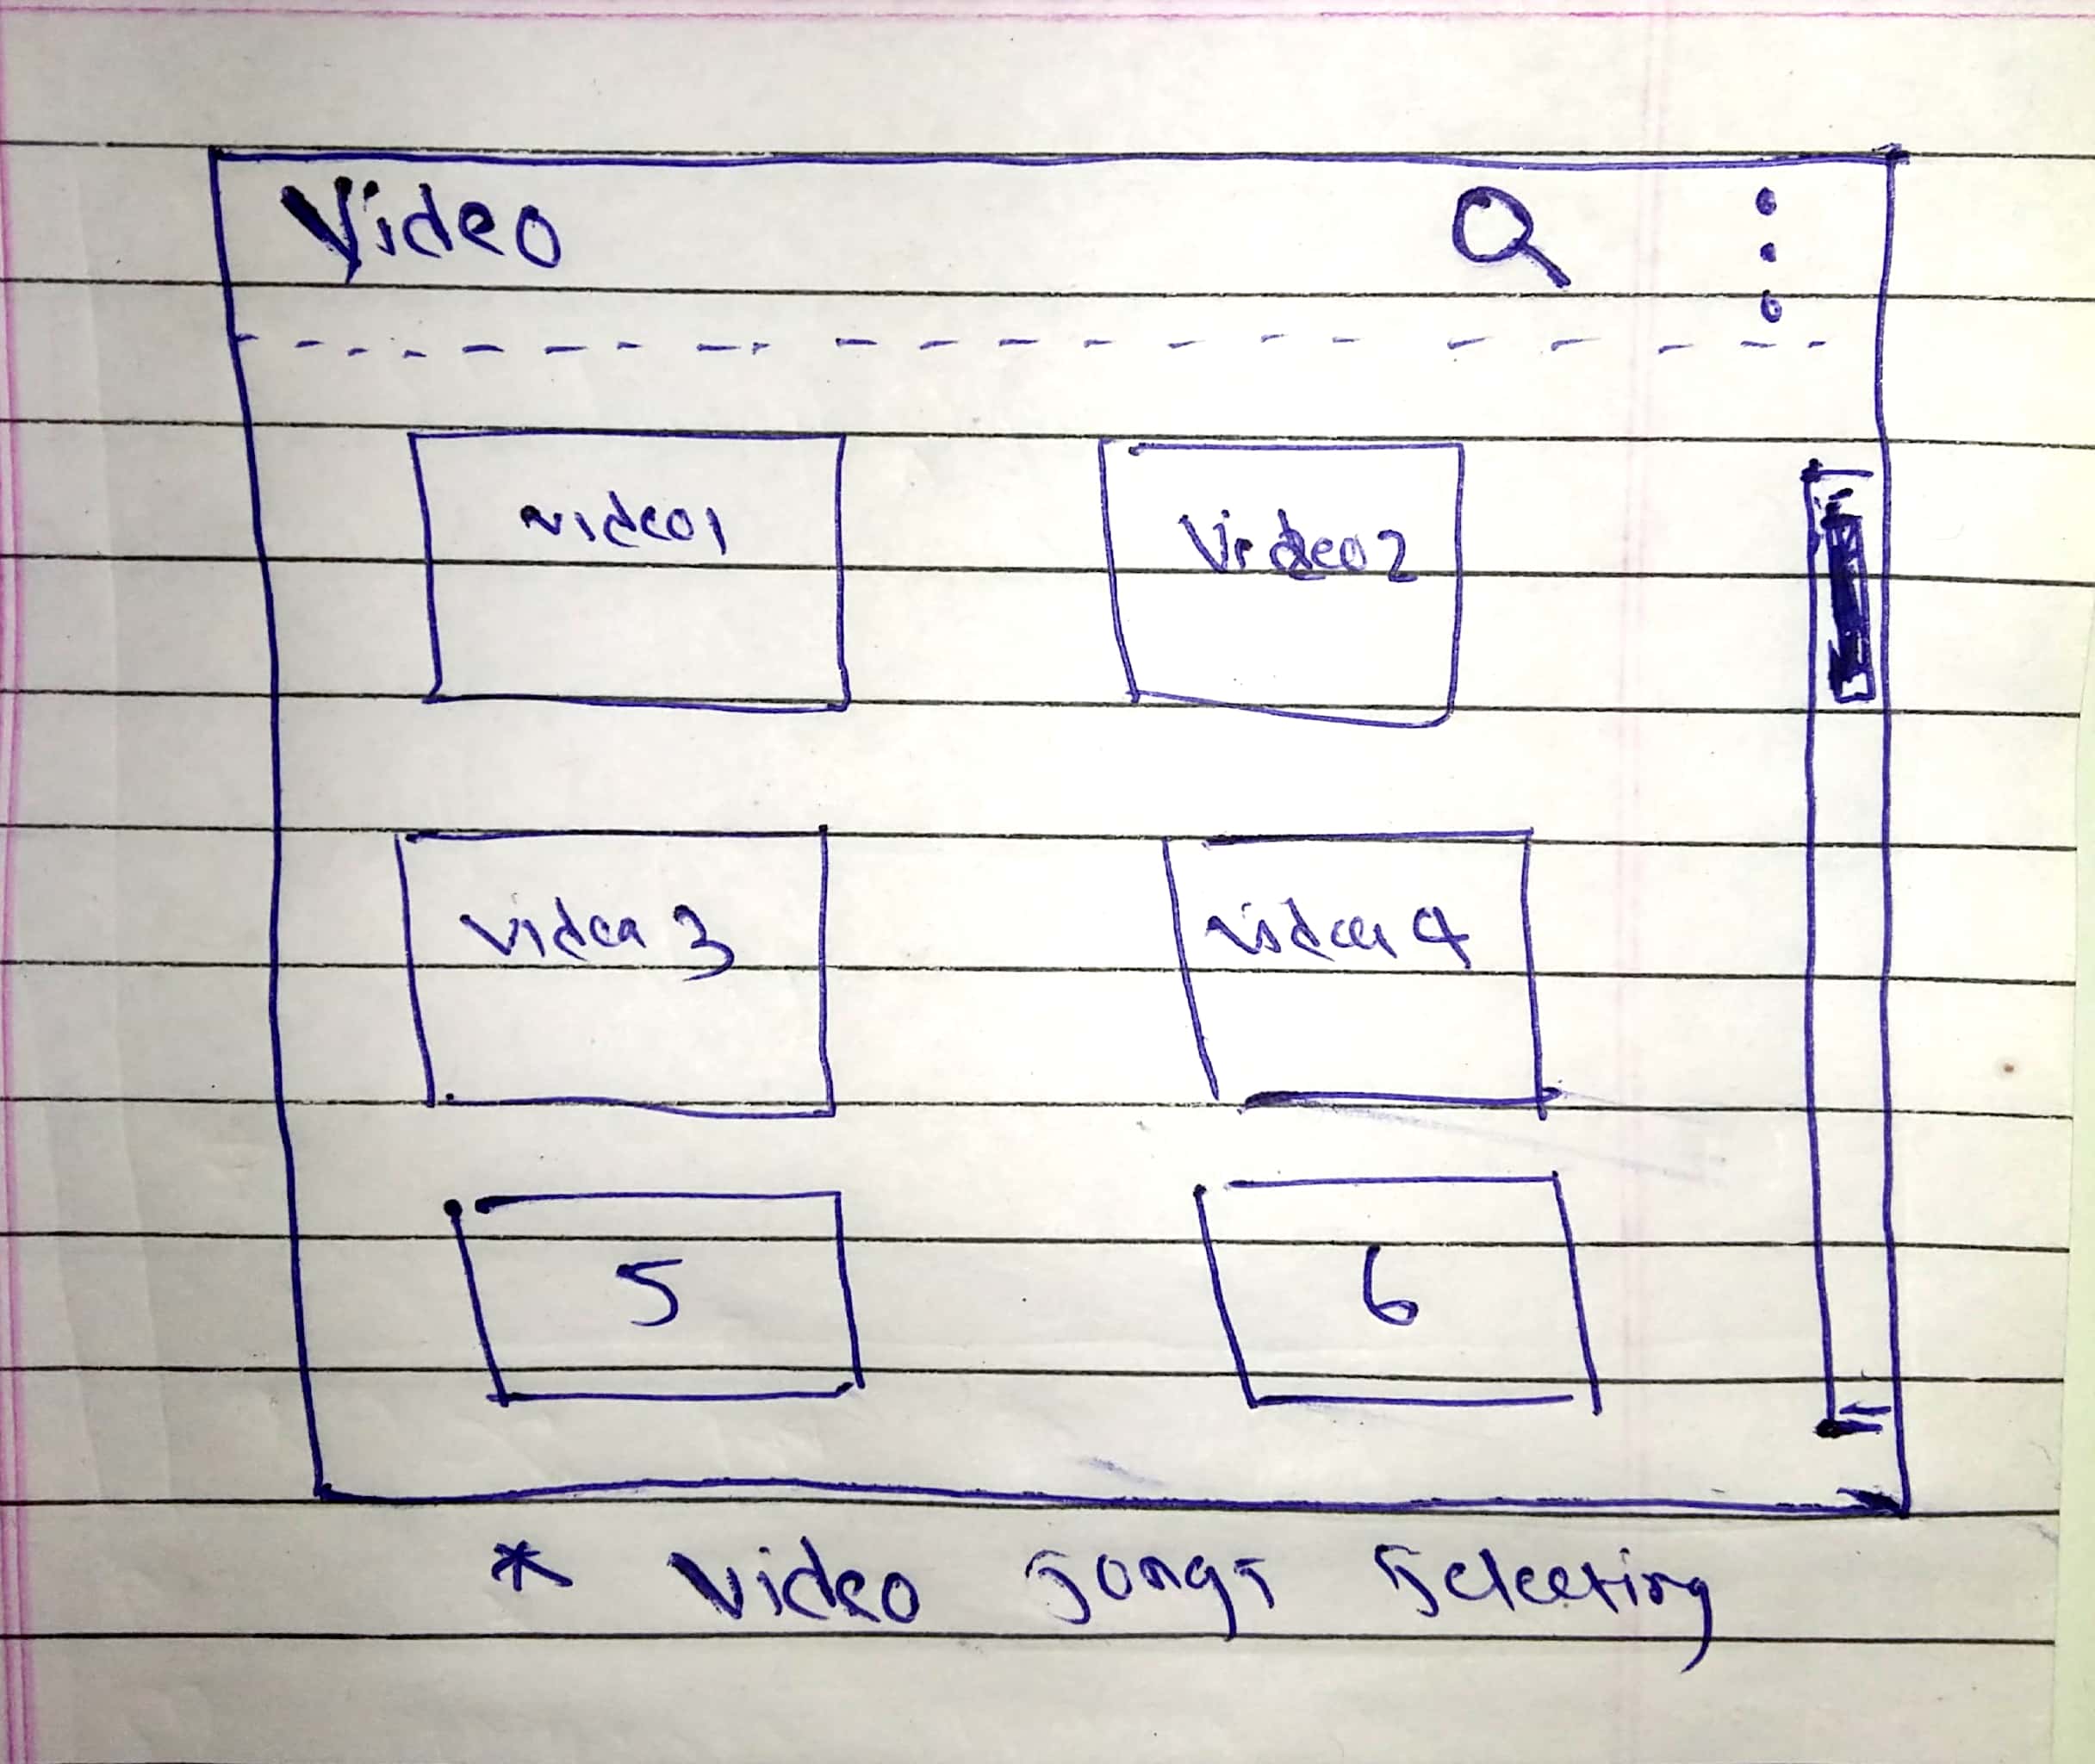 Video
video1
Video2
video 3
video 4
5
6
* Video songs selecting